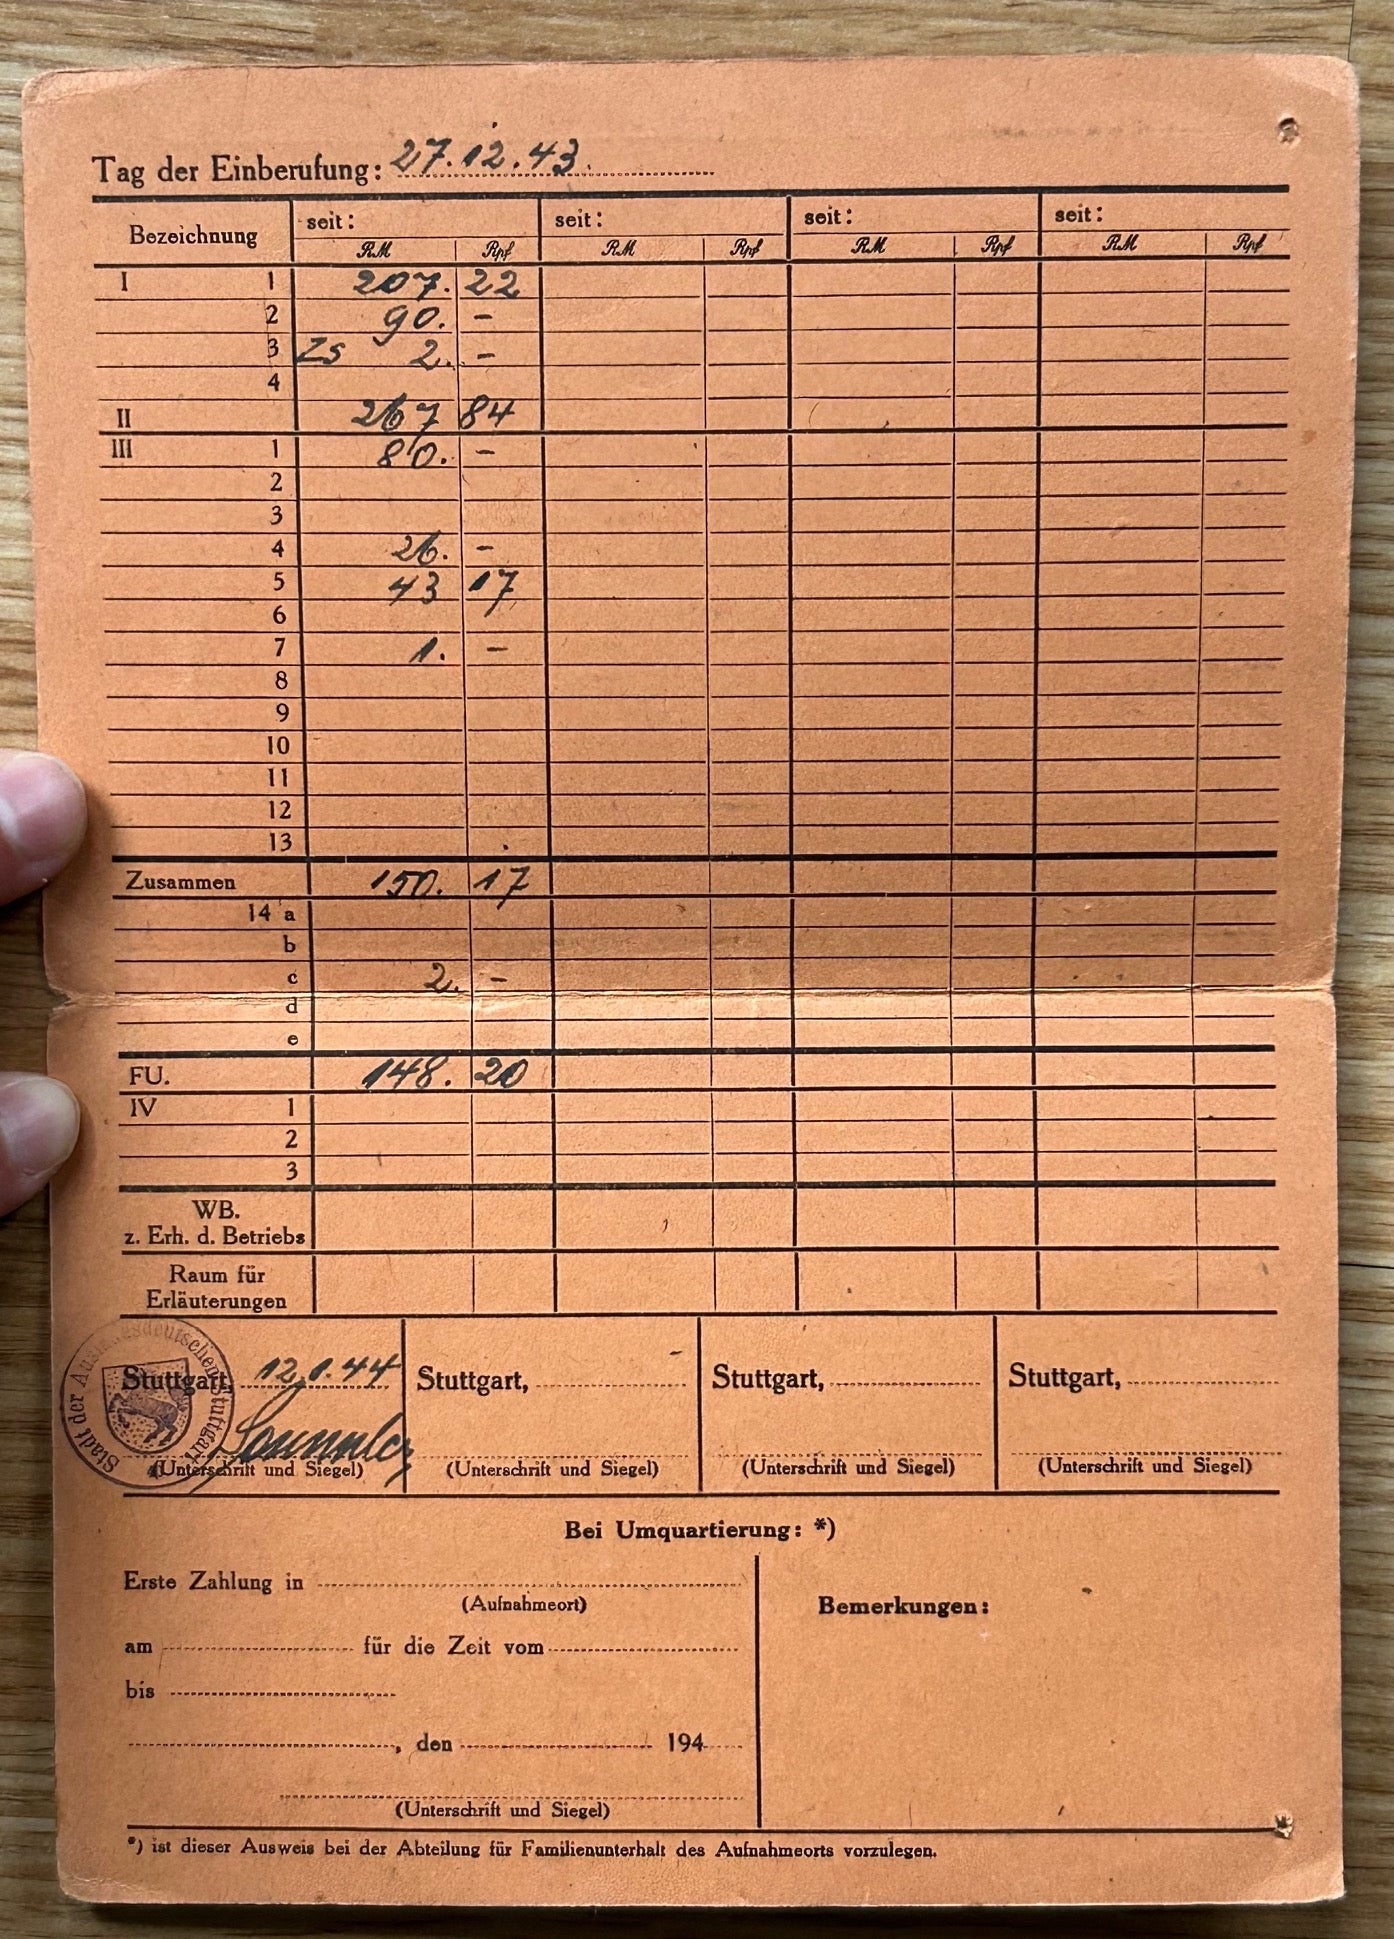 Tag der Einberufung: 27.12.43.
Bezeichnung seit: seit: seit: seit:
RM Rpf RM Rpf RM Rpf RM Rpf
I 1 207. 22
2 90. -
3 Zs 2. -
4
II 267 84
III 1 80. -
2
3
4 26. -
5 43 17
6
7 1. -
8
9
10
11
12
13
Zusammen 150. 17
14 a
b
c 2. -
d
e
FU. 148. 20
IV 1
2
3
WB.
z. Erh. d. Betriebs
Raum für
Erläuterungen
Stadt der Auslandsdeutschen Stuttgart
Stuttgart, 12.1.44 Stuttgart, Stuttgart, Stuttgart,
(Unterschrift und Siegel) (Unterschrift und Siegel) (Unterschrift und Siegel) (Unterschrift und Siegel)
Bei Umquartierung: *)
Erste Zahlung in
(Aufnahmeort)
Bemerkungen:
am für die Zeit vom
bis
, den 194
(Unterschrift und Siegel)
*) ist dieser Ausweis bei der Abteilung für Familienunterhalt des Aufnahmeorts vorzulegen.